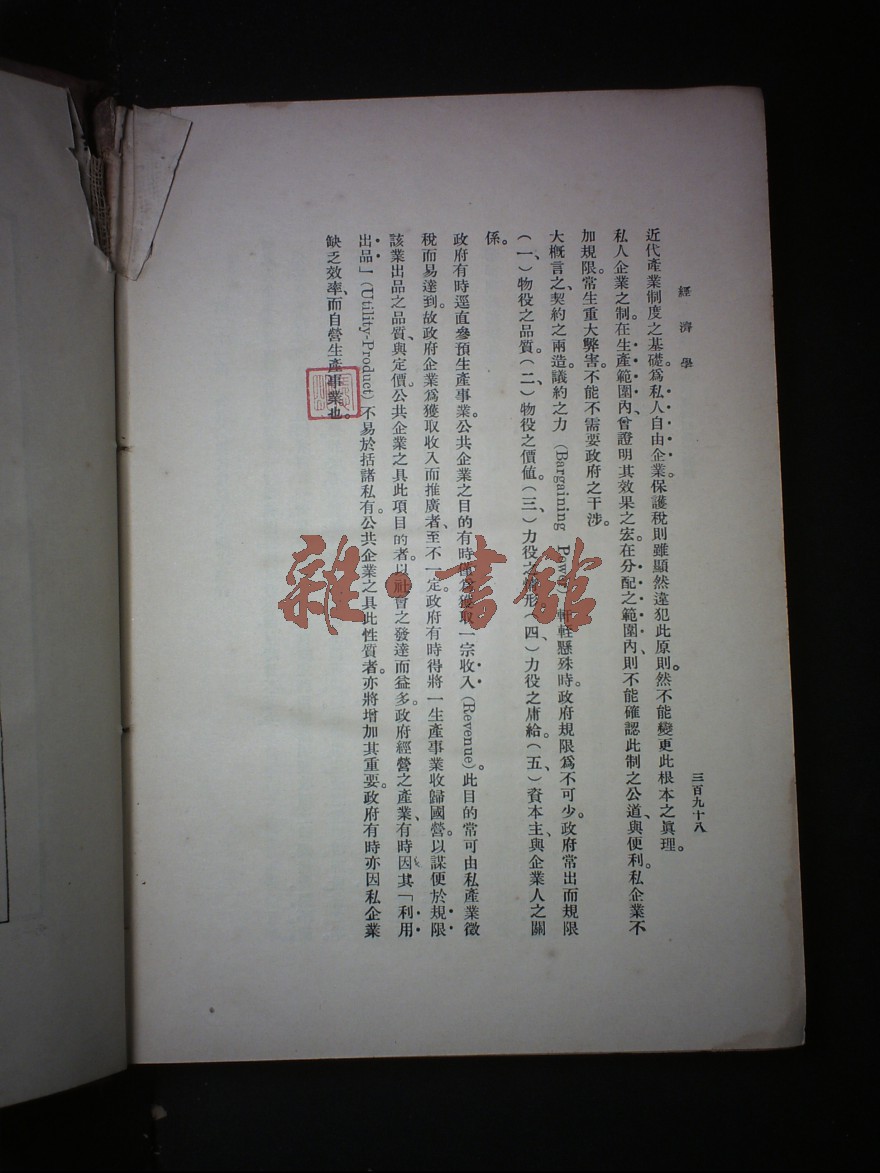 經濟學
三百九十八
近代產業制度之基礎。爲私人自由企業。保護稅則雖顯然違犯此原則。然不能變更此根本之眞理。
私人企業之制。在生產範圍內、曾證明其效果之宏。在分配之範圍內、則不能確認此制之公道、與便利。私企業不
加規限。常生重大弊害。不能不需要政府之干涉。
大概言之、契約之兩造。議約之力 (Bargaining Power) 軒輊懸殊時。政府規限爲不可少。政府常出而規限
(一)、物役之品質。(二)、物役之價值。(三)、力役之情形(四)、力役之庸給。(五)、資本主、與企業人之關
係。
政府有時逕直參預生產事業。公共企業之目的有時僅爲獲取一宗收入 (Revenue)。此目的常可由私產業徵
稅而易達到。故政府企業爲獲取收入而推廣者、至不一定。政府有時得將一生產事業收歸國營。以謀便於規限
該業出品之品質、與定價。公共企業之具此項目的者。以社會之發達而益多。政府經營之產業、有時因其「利用
出品」(Utility-Product) 不易於括諸私有。公共企業之具此性質者。亦將增加其重要。政府有時亦因私企業
缺乏效率、而自營生產事業也。
雜·書館